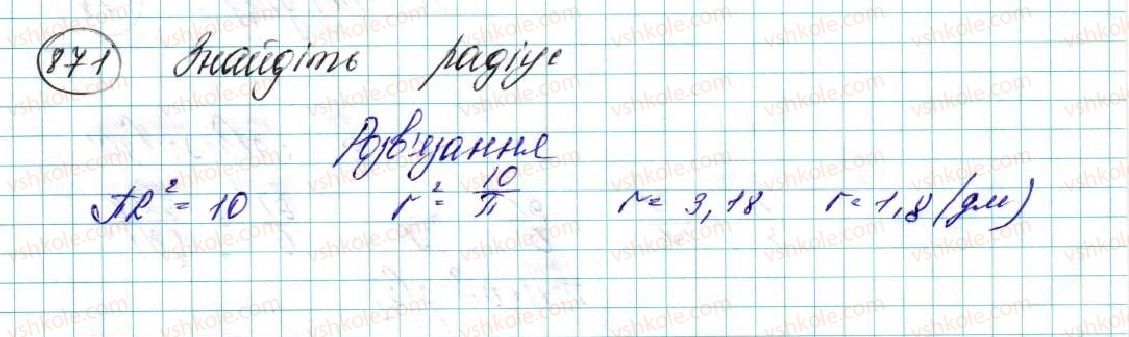 871 Знайдіть радіус
Розв'язання
πR² = 10 r² = 10/π r = 3,18 r = 1,8 (дм)